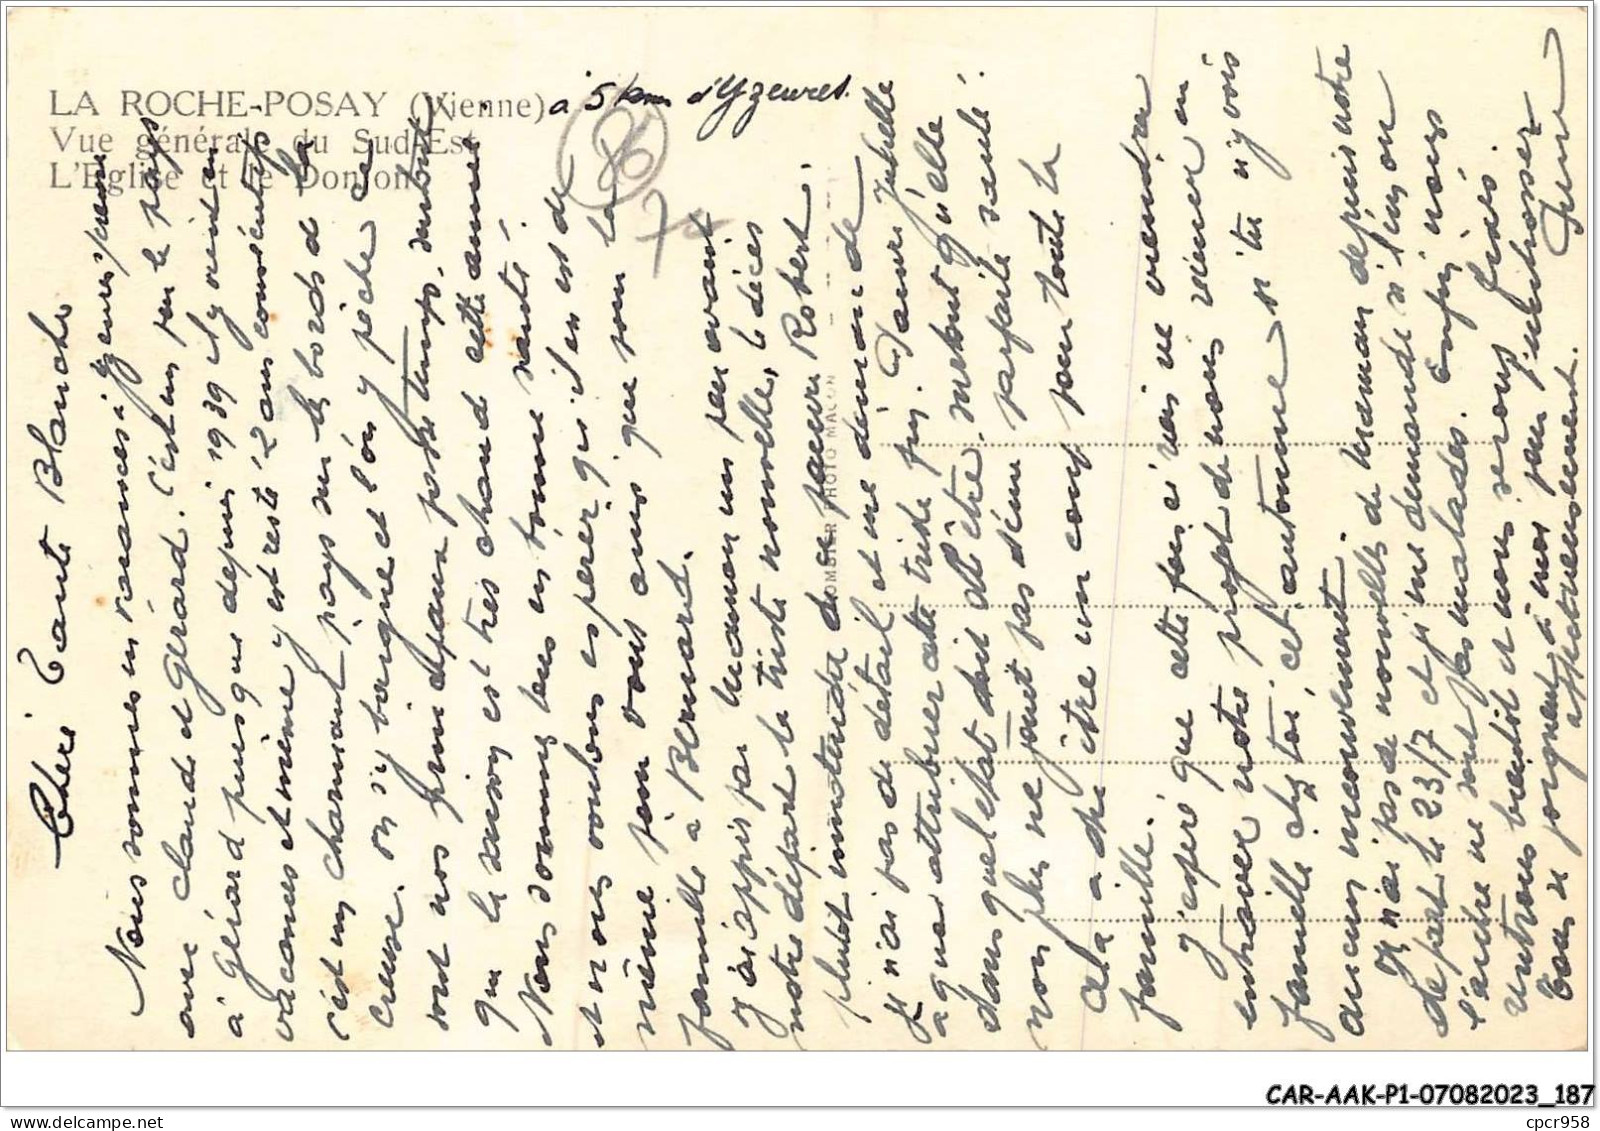 LA ROCHE-POSAY (Vienne) à 5 km d'Yzeures.
Vue générale du Sud-Est
L'Eglise et le Donjon
86
COMBIER PHOTO MACON
Chère Tante Blanche
Nous sommes en vacances à Yzeures s/creuse
avec Claude et Gérard. C'est un peu le pays
à Gérard puisque depuis 1939 il y vient en
vacances et même y est resté 2 ans consécutifs
c'est un charmant pays sur les bords de la
Creuse. On s'y baigne et l'on y pêche ce
sont nos principaux passe temps, surtout
que la saison est très chaude cette année.
Nous sommes tous en bonne santé.
et nous voulons espérer qu'il en est de
même pour vous ainsi que pour la
famille à Bernard.
J'ai appris par Maman un peu avant
notre départ la triste nouvelle, le décès
plutôt inattendu de ce pauvre Robert.
Je n'ai pas de détail et me demande
à quoi attribuer cette triste fin. Pauvre
dans quel état doit-elle être, surtout qu'elle
non plus ne jouit pas d'une parfaite santé.
Cela a dû être un coup pour toute la
famille.
J'espère que cette fois-ci rien ne viendra
entraver notre projet de nous réunir en
famille chez toi, cet automne si tu n'y vois
aucun inconvénient.
Je n'ai pas de nouvelles de maman depuis notre
départ le 23/7 et je me demande si l'un ou
l'autre ne sont pas malades. Enfin nous
rentrons bientôt et nous serons fixés.
Tous se joignent à moi pour t'embrasser
affectueusement.
CAR-AAK-P1-07082023_187
www.delcampe.net
cpcr958